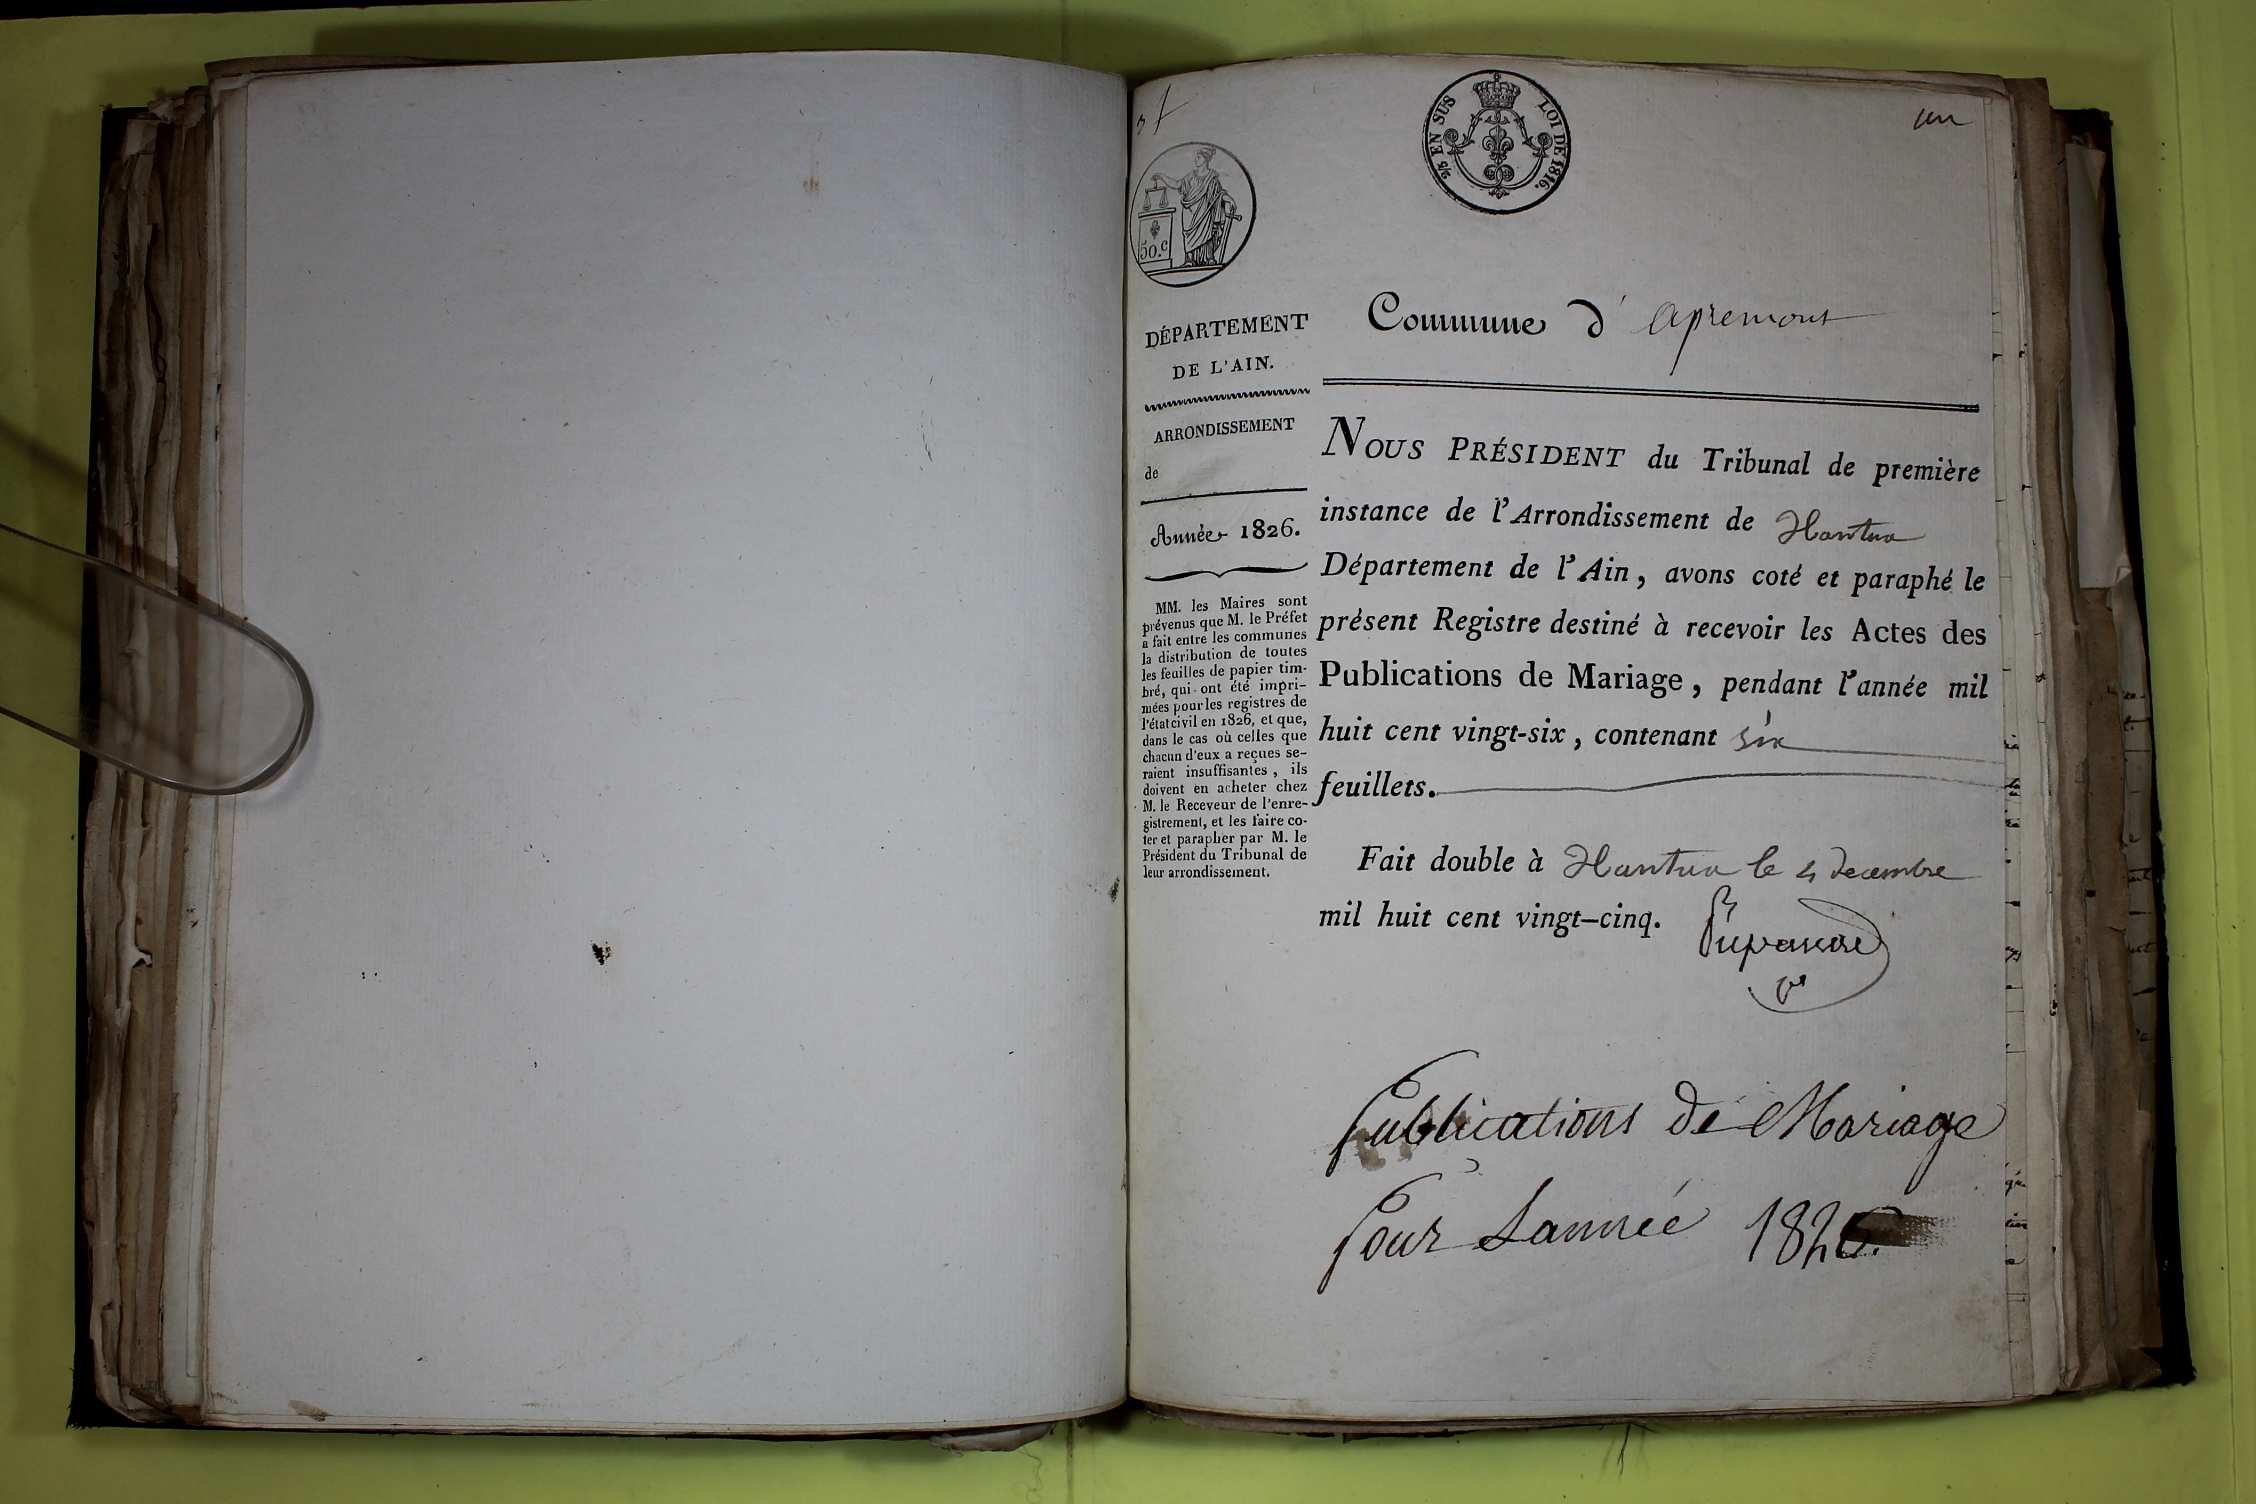 un
2/5 EN SUS LOI DE 1816.
50.c
DÉPARTEMENT
DE L'AIN.
ARRONDISSEMENT
de
Année 1826.
MM. les Maires sont
prévenus que M. le Préfet
a fait entre les communes
la distribution de toutes
les feuilles de papier tim-
bré, qui ont été impri-
mées pour les registres de
l'état civil en 1826, et que,
dans le cas où celles que
chacun d'eux a reçues se-
raient insuffisantes, ils
doivent en acheter chez
M. le Receveur de l'enre-
gistrement, et les faire co-
ter et parapher par M. le
Président du Tribunal de
leur arrondissement.
Commune d'apremont
NOUS PRÉSIDENT du Tribunal de première
instance de l'Arrondissement de Nantua
Département de l'Ain, avons coté et paraphé le
présent Registre destiné à recevoir les Actes des
Publications de Mariage, pendant l'année mil
huit cent vingt-six, contenant six
feuillets.
Fait double à Nantua le 4 decembre
mil huit cent vingt-cinq.
Publications de Mariage
Pour Lannée 1826.